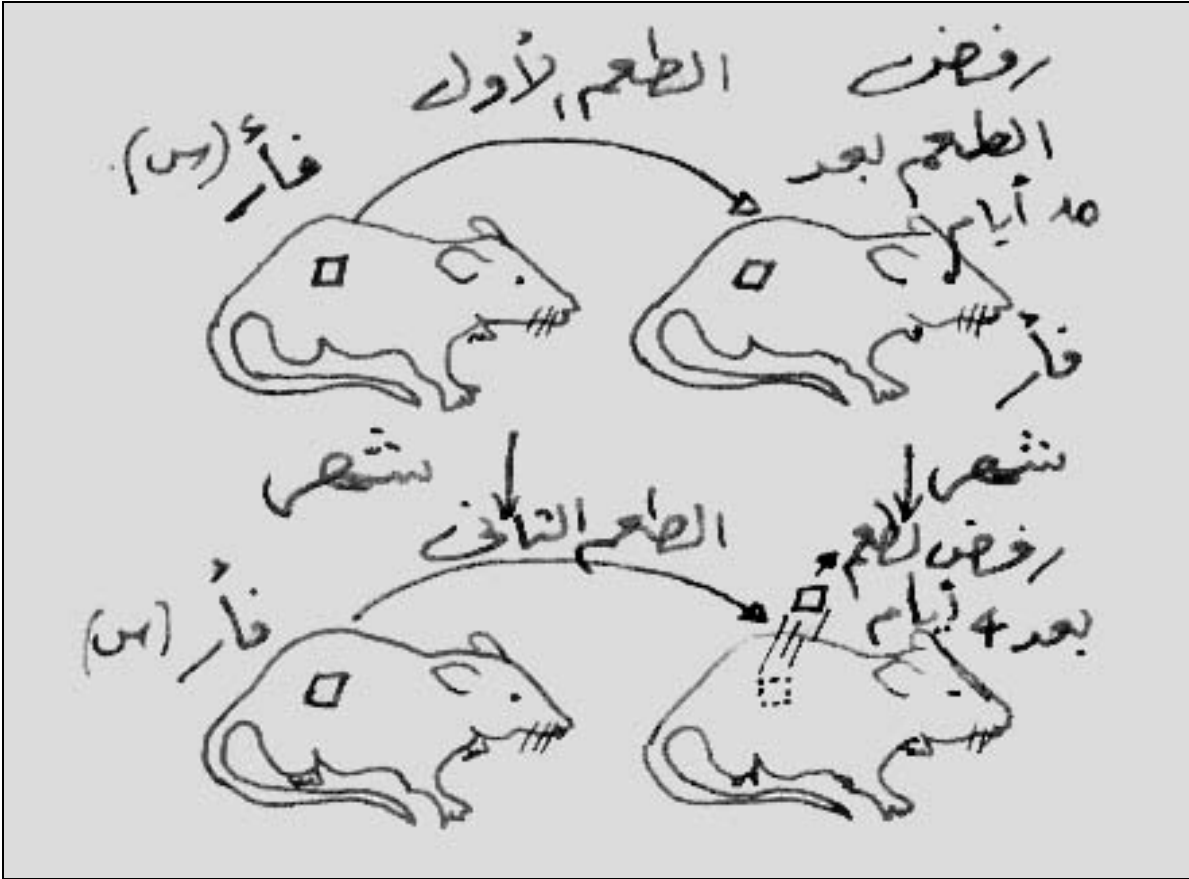 الطعم الأول
رفض
الطعم بعد
10 أيام
فأر (س)
فأر
شهر
شهر
الطعم الثانى
رفض لطعم
بعد 4 أيام
فأر (س)